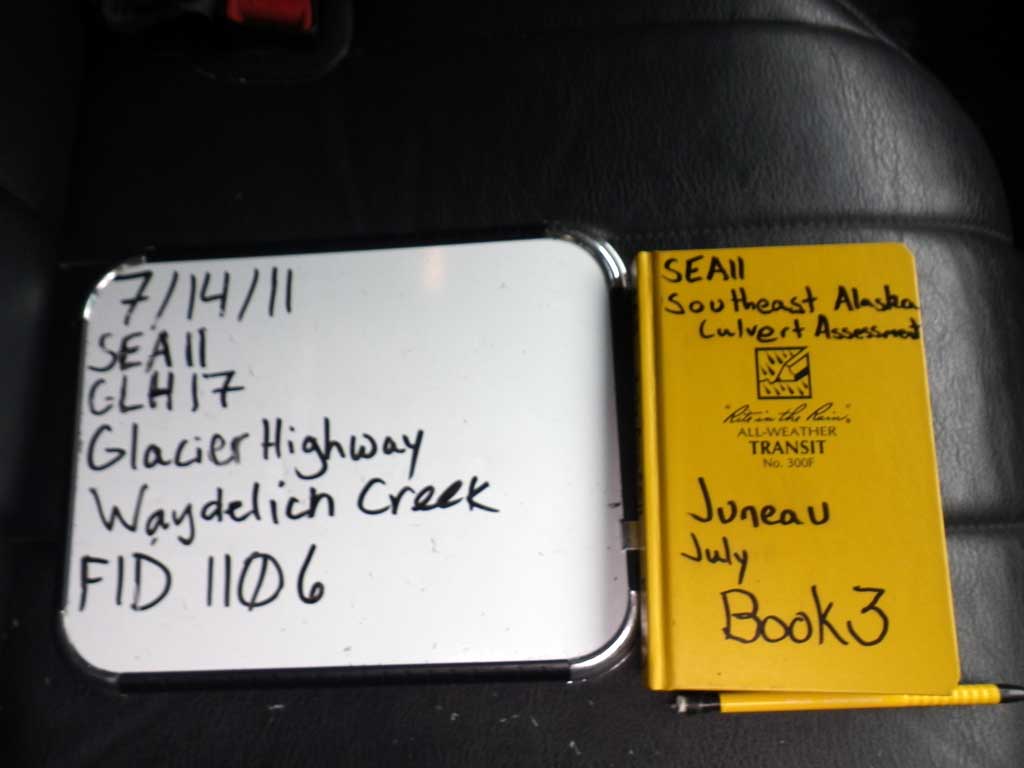 7/14/11
SEA11
GLH17
Glacier Highway
Waydelich Creek
FID 1106
SEA11
Southeast Alaska
Culvert Assessment
"Rite in the Rain"®
ALL-WEATHER
TRANSIT
No. 300F
Juneau
July
Book 3